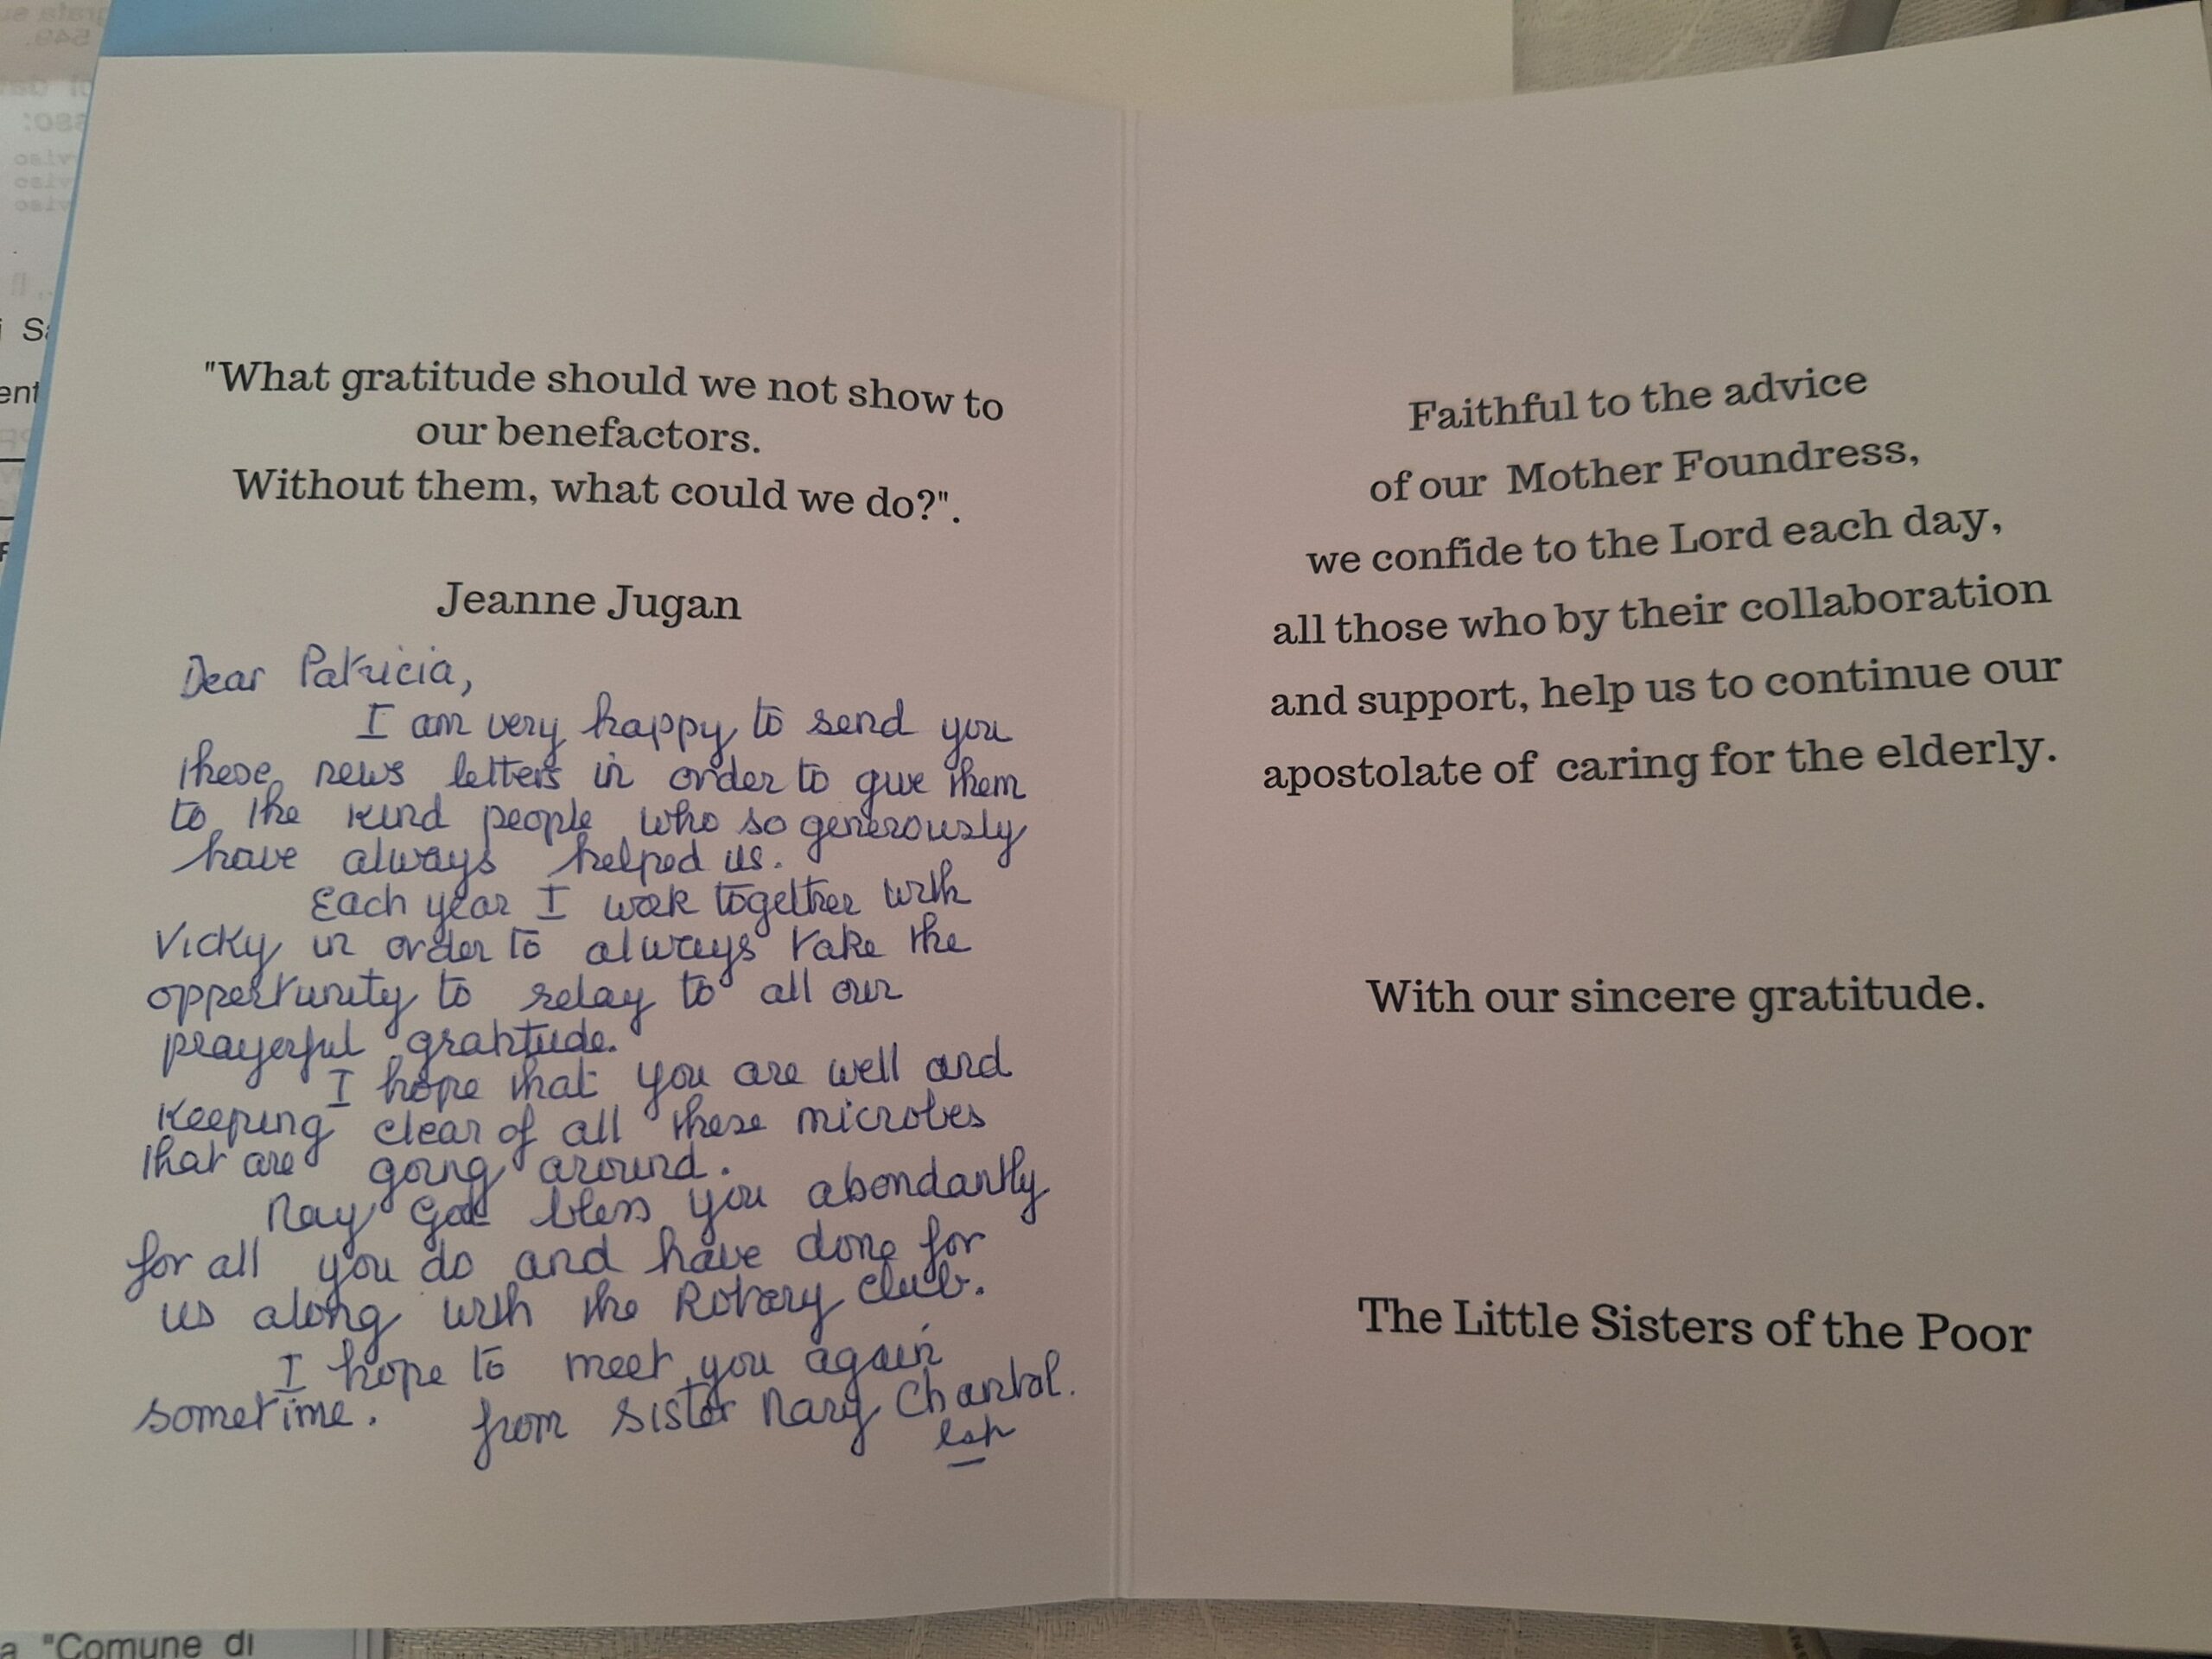 "What gratitude should we not show to
our benefactors.
Without them, what could we do?".
Jeanne Jugan
Dear Patricia,
I am very happy to send you
these news letters in order to give them
to the kind people who so generously
have always helped us.
Each year I work together with
Vicky in order to always take the
opportunity to relay to all our
prayerful gratitude.
I hope that you are well and
keeping clear of all these microbes
that are going around.
May God bless you abondantly
for all you do and have done for
us along with the Rotary club.
I hope to meet you again
sometime. from Sister Mary Chantal.
lsp
Faithful to the advice
of our Mother Foundress,
we confide to the Lord each day,
all those who by their collaboration
and support, help us to continue our
apostolate of caring for the elderly.
With our sincere gratitude.
The Little Sisters of the Poor
"Comune di